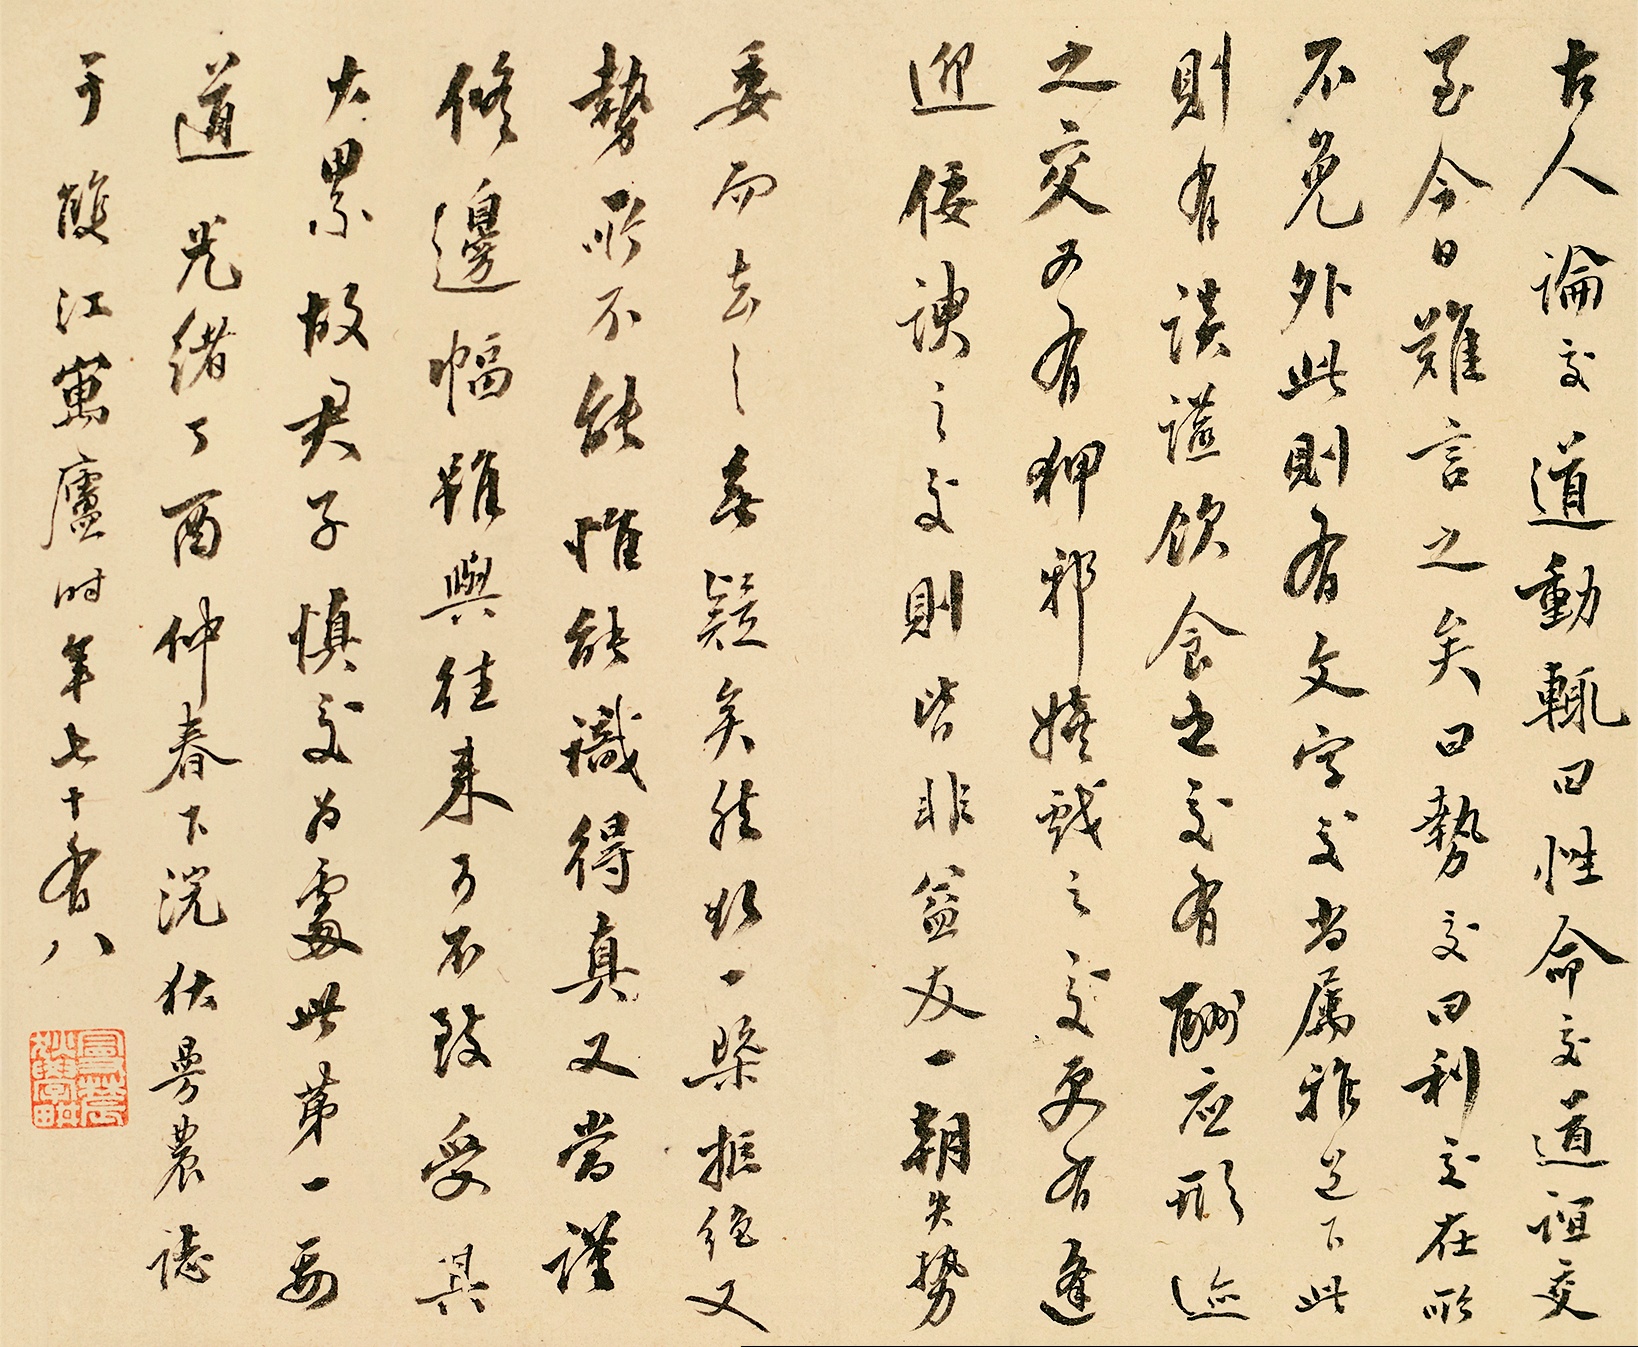 古人論交道動輒曰性命交道誼交
至今日難言之矣曰勢交曰利交在所
不免外此則有文字交尚屬雅道下此
則有談讌飲食之交有酬應形迹
之交又有狎邪嬉戲之交更有逢
迎佞諛之交則皆非益友一朝失勢
委而去之無疑矣然欲一槩拒絕又
勢所不能惟能識得真又當謹
修邊幅雖與往來可不致受其
大累故君子慎交為處世第一要
道 光緒丁酉仲春下浣秋曼農誌
于雙江寓廬時年七十有八